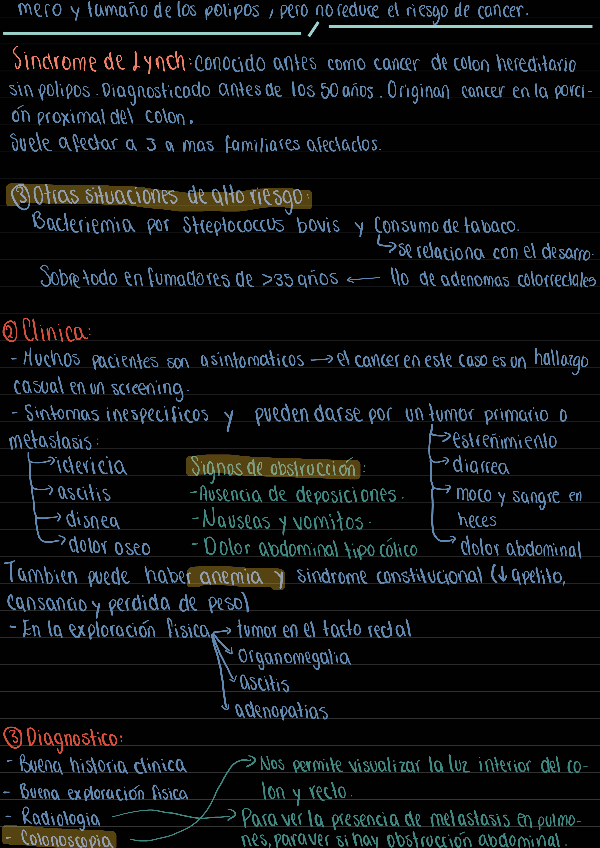 mero y tamaño de los polipos, pero no reduce el riesgo de cancer.
Sindrome de Lynch: Conocido antes como cancer de colon hereditario
sin polipos. Diagnosticado antes de los 50 años. Originan cancer en la porci-
ón proximal del colon.
Suele afectar a 3 a mas familiares afectados.
③ Otras situaciones de alto riesgo:
Bacteriemia por Streptococcus bovis y Consumo de tabaco.
↳ se relaciona con el desarro-
Sobre todo en fumadores de >35 años ← llo de adenomas colorrectales
② Clinica:
- Muchos pacientes son asintomaticos → el cancer en este caso es un hallazgo
casual en un screening.
- Sintomas inespecificos y pueden darse por un tumor primario o
metastasis:
→ ictericia
→ ascitis
→ disnea
→ dolor oseo
Signos de obstrucción:
- Ausencia de deposiciones.
- Nauseas y vomitos.
- Dolor abdominal tipo cólico
→ estreñimiento
→ diarrea
→ moco y sangre en
heces
→ dolor abdominal
Tambien puede haber anemia y sindrome constitucional (↓ apetito,
cansancio y perdida de peso)
- En la exploración fisica → tumor en el tacto rectal
organomegalia
ascitis
adenopatias
③ Diagnostico:
- Buena historia clinica
- Buena exploración fisica
- Radiologia
- Colonoscopia
→ Nos permite visualizar la luz interior del co-
lon y recto.
→ Para ver la presencia de metastasis en pulmo-
nes, para ver si hay obstrucción abdominal.